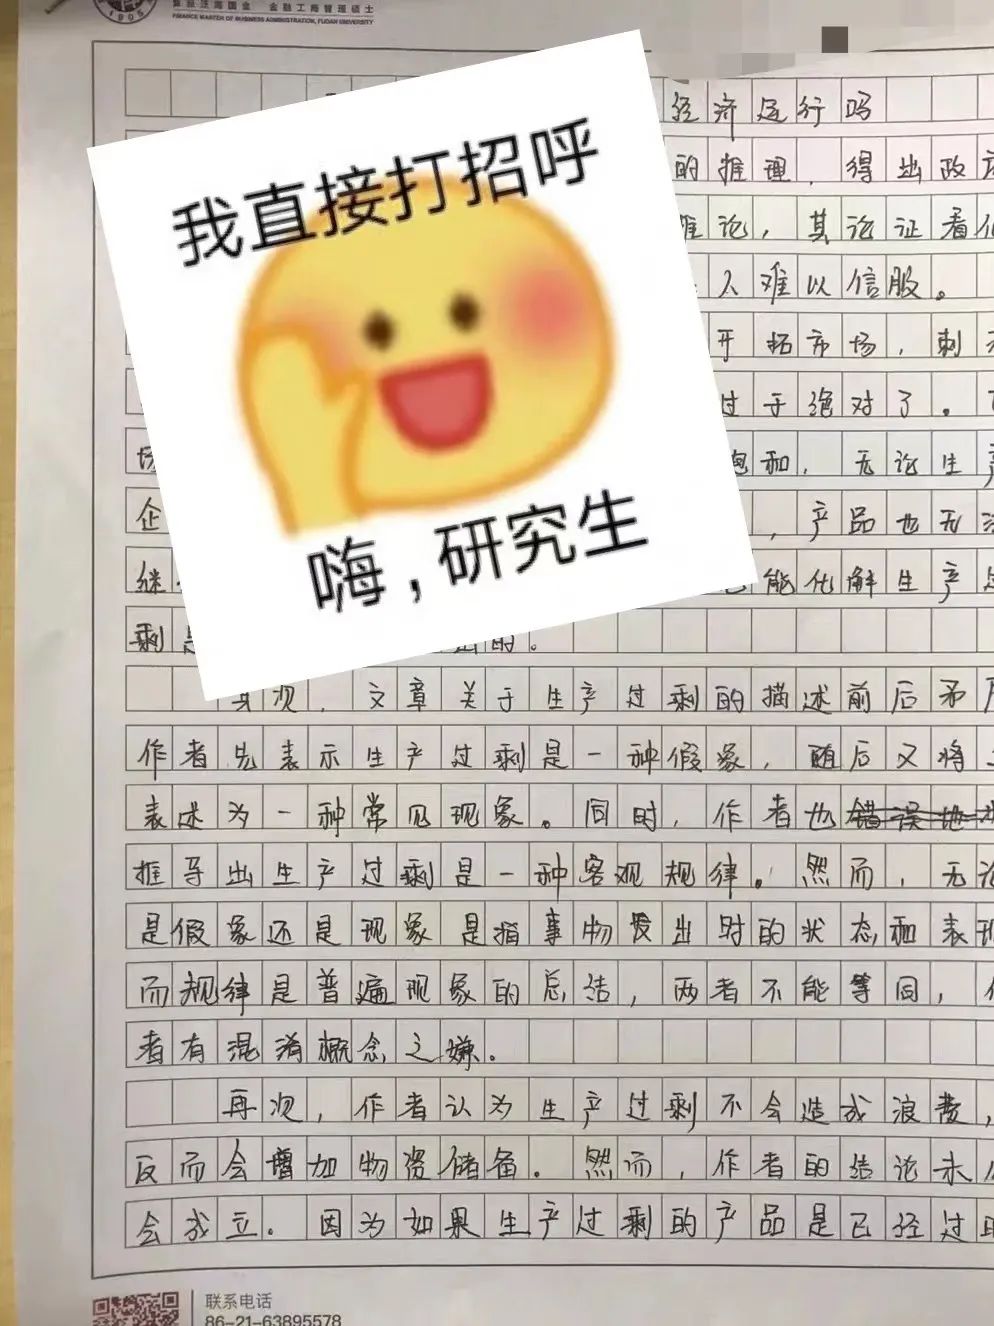 复旦泛海国金 金融工商管理硕士
FINANCE MASTER OF BUSINESS ADMINISTRATION, FUDAN UNIVERSITY
1905
经济运行吗
我直接打招呼
的推理，得出政
推论，其论证看似
人难以信服。
开拓市场，刺
过于绝对了。
和，无论生产
企
，产品也无法
继
能化解生产
剩
的。
嗨，研究生
其次，文章关于生产过剩的描述前后矛
作者先表示生产过剩是一种假象，随后又将
表述为一种常见现象。同时，作者也错误地
推导出生产过剩是一种客观规律。然而，无论
是假象还是现象是指事物发出时的状态和表现
而规律是普遍现象的总结，两者不能等同，
者有混淆概念之嫌。
再次，作者认为生产过剩不会造成浪费，
反而会增加物资储备。然而，作者的结论未
会成立。因为如果生产过剩的产品是已经过
联系电话
86-21-63895578